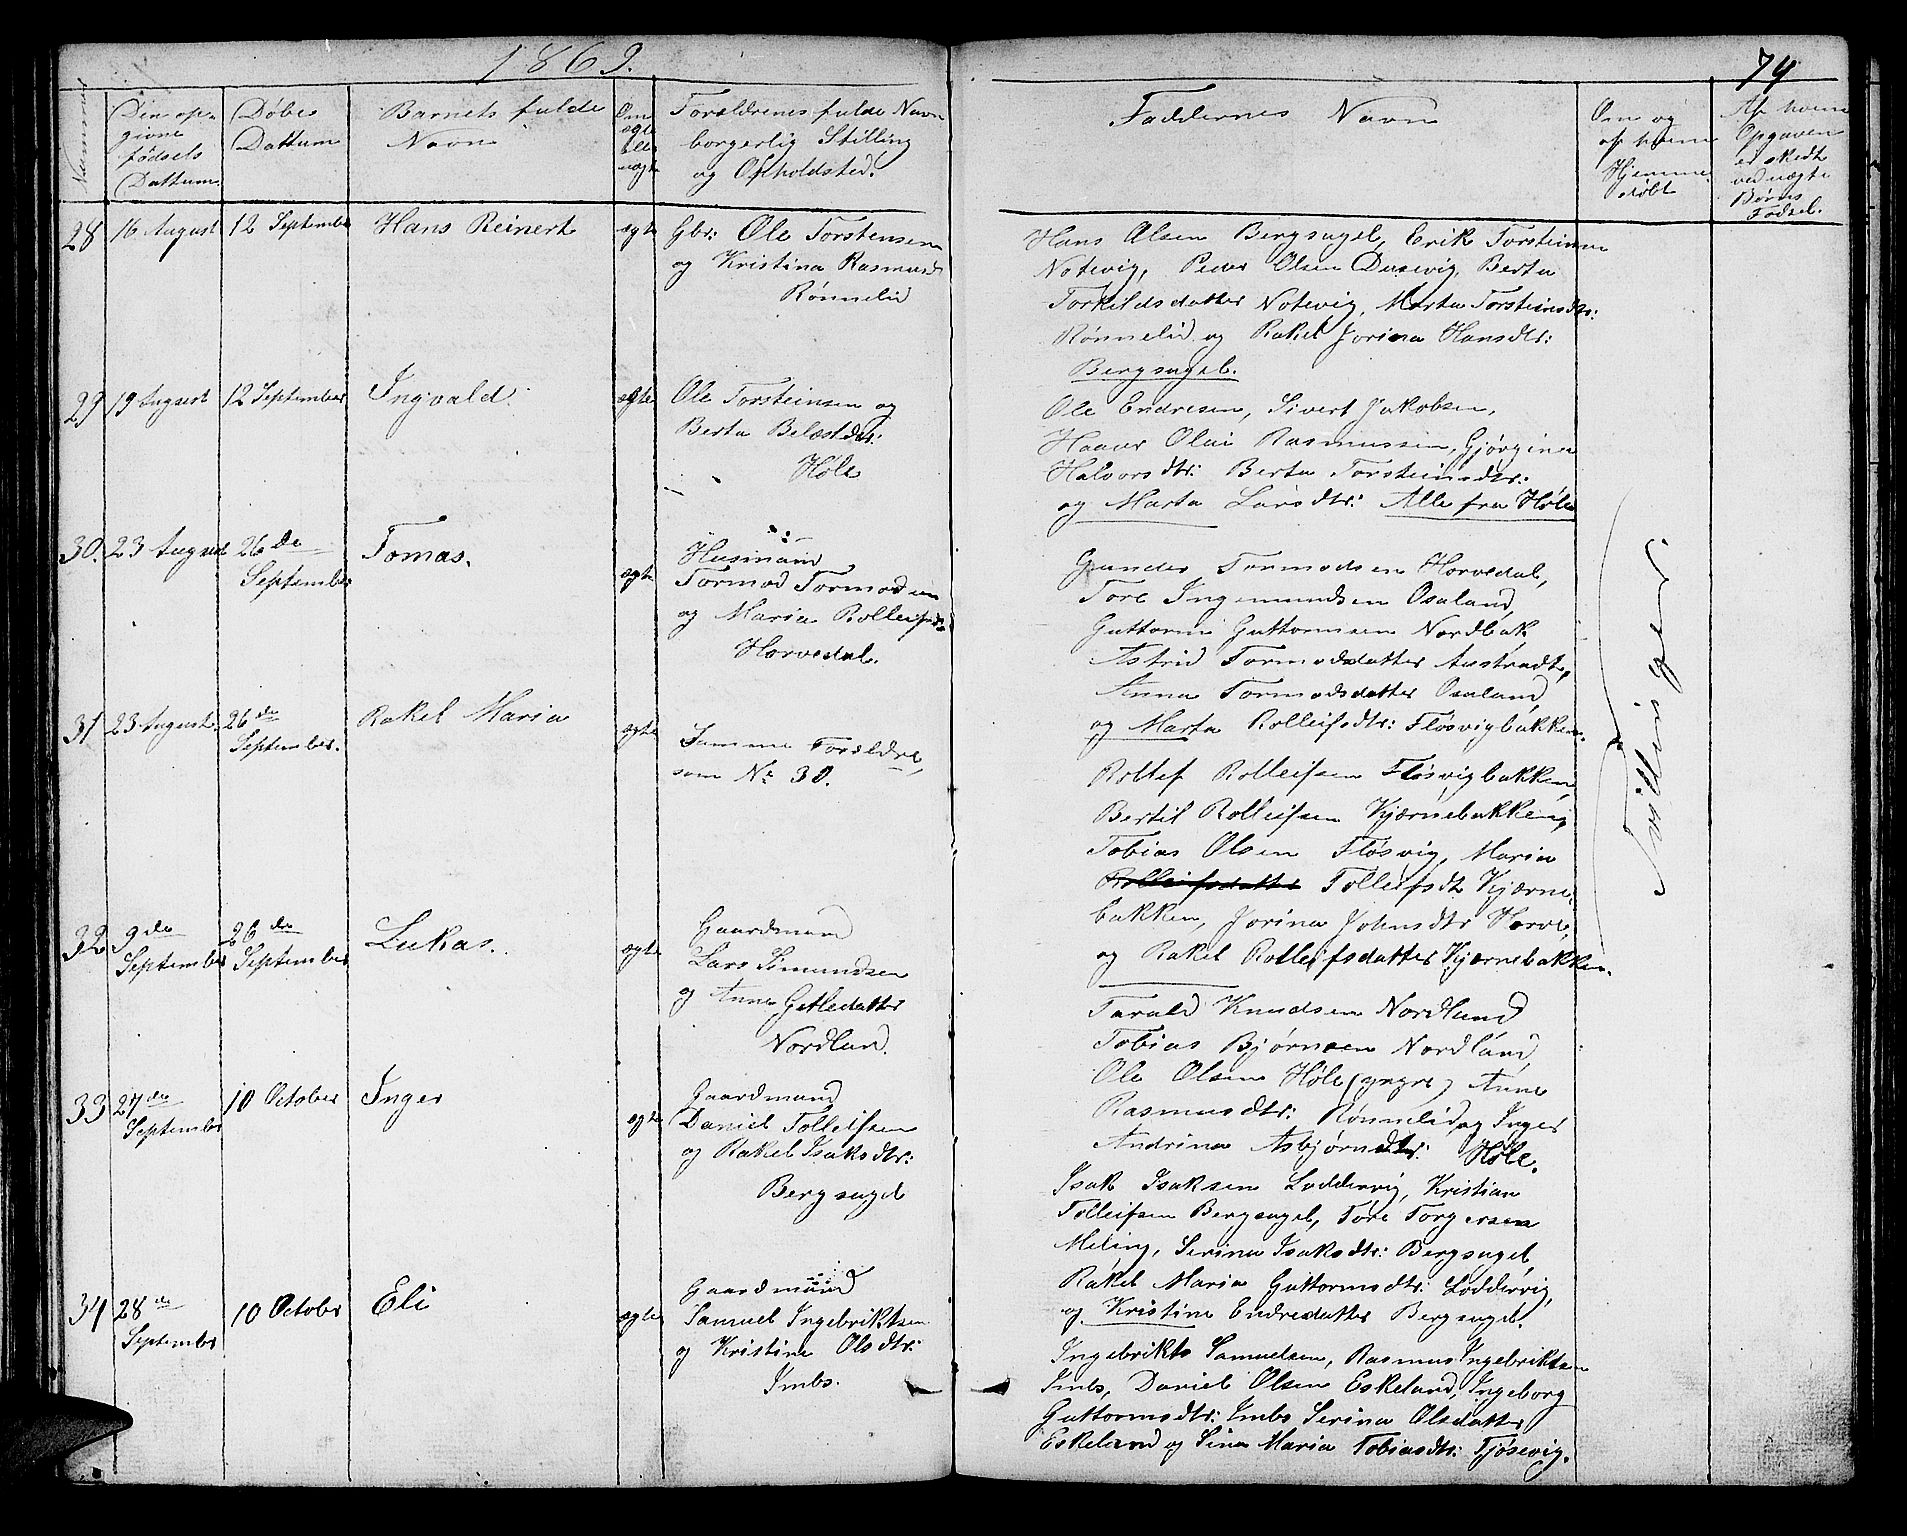 1869.
74
Nummer
Den op-
givne
fødsels
Dattum.
Døbe
Dattum
Barnets fulde
Navn
Om
ægte
eller
uægte
Forældrenes fulde Navn
borgerlig Stilling
og Opholdsted.
Faddernes Navn
Om og
af hvem
Hjemme-
døbt
Af hvem
Opgaven
er skedt
ved uægte
Børns
Fødsel.
28 16 August 12 September Hans Reinert ægte Gbr: Ole Torstensen
og Kristina Rasmusd
Rønnelid
Hans Olsen Bergsagel, Erik Torsteinsen
Notevig, Peder Olsen Dusevig, Berta
Torkildsdatter Notevig, Marta Torsteinsdtr:
Rønnelid og Rakel Jorina Hansdtr:
Bergsagel.
29 19 August 12 September Ingvald. ægte Ole Torsteinsen og
Berta Belæstdtr:
Høle
Ole Endresen, Sivert Jakobsen,
Haaver Olai Rasmussen, Gjørgina
Halvorsdtr: Berta Torsteinsdtr:
og Marta Larsdtr: Alle fra Høle
30. 23 August 26de
September
Tomas. ægte Husmand
Tormod Tormodsen
og Maria Rolleifsd
Horvedal.
Gunder Tormodsen Horvedal,
Tore Ingemundsen Osaland,
Guttorm Guttormsen Nordbak
Astrid Tormodsdatter Austradt,
Anna Tormodsdatter Osaland,
og Marta Rolleifsdtr: Fløsvigbakken.
31 23 August. 26de
September.
Rakel Maria ægte Samme Forældre,
som No 30.
Rollef Rolleifsen Fløsvigbakken,
Bertil Rolleifsen Kjærnebakken,
Tobias Olsen Fløsvig, Maria
Rolleifsdatter Tolleifsdt Kjærne-
bakken, Jorina Johnsdtr Horve,
og Rakel Rolleifsdatter Kjærnebakken.
Tvillinger.
32 9de
September
26de
September
Lukas. ægte Gaardmand
Lars Simundsen
og Anne Gitledatter
Nordland.
Tarald Knudsen Nordland,
Tobias Bjørnsen Nordland,
Ole Olsen Høle (yngre) Anne
Rasmusdtr: Rønnelid, og Inger
Andrina Asbjørnsdtr: Høle.
33 27de
September
10 October Inger ægte Gaardmand
Daniel Tolleifsen
og Rakel Isaksdtr:
Bergsagel
Isak Isaksen Loddervig, Kristian
Tolleifsen Bergsagel, Tore Torgersen
Meling, Serina Isaksdtr: Bergsagel,
Rakel Maria Guttormsdtr: Loddervig,
og Kristine Endresdatter Bergsagel.
34 28de
September
10 October Eli ægte Gaardmand
Samuel Ingebriktsen
og Kristine Olsdtr:
Imbs.
Ingebrikts Samuelsen, Rasmus Ingebriktsen
Imbs, Daniel Olsen Eskeland, Ingeborg
Guttormsdtr: Imbs Serina Olsdatter
Eskeland og Sina Maria Tobiasdtr: Tjøsevig.